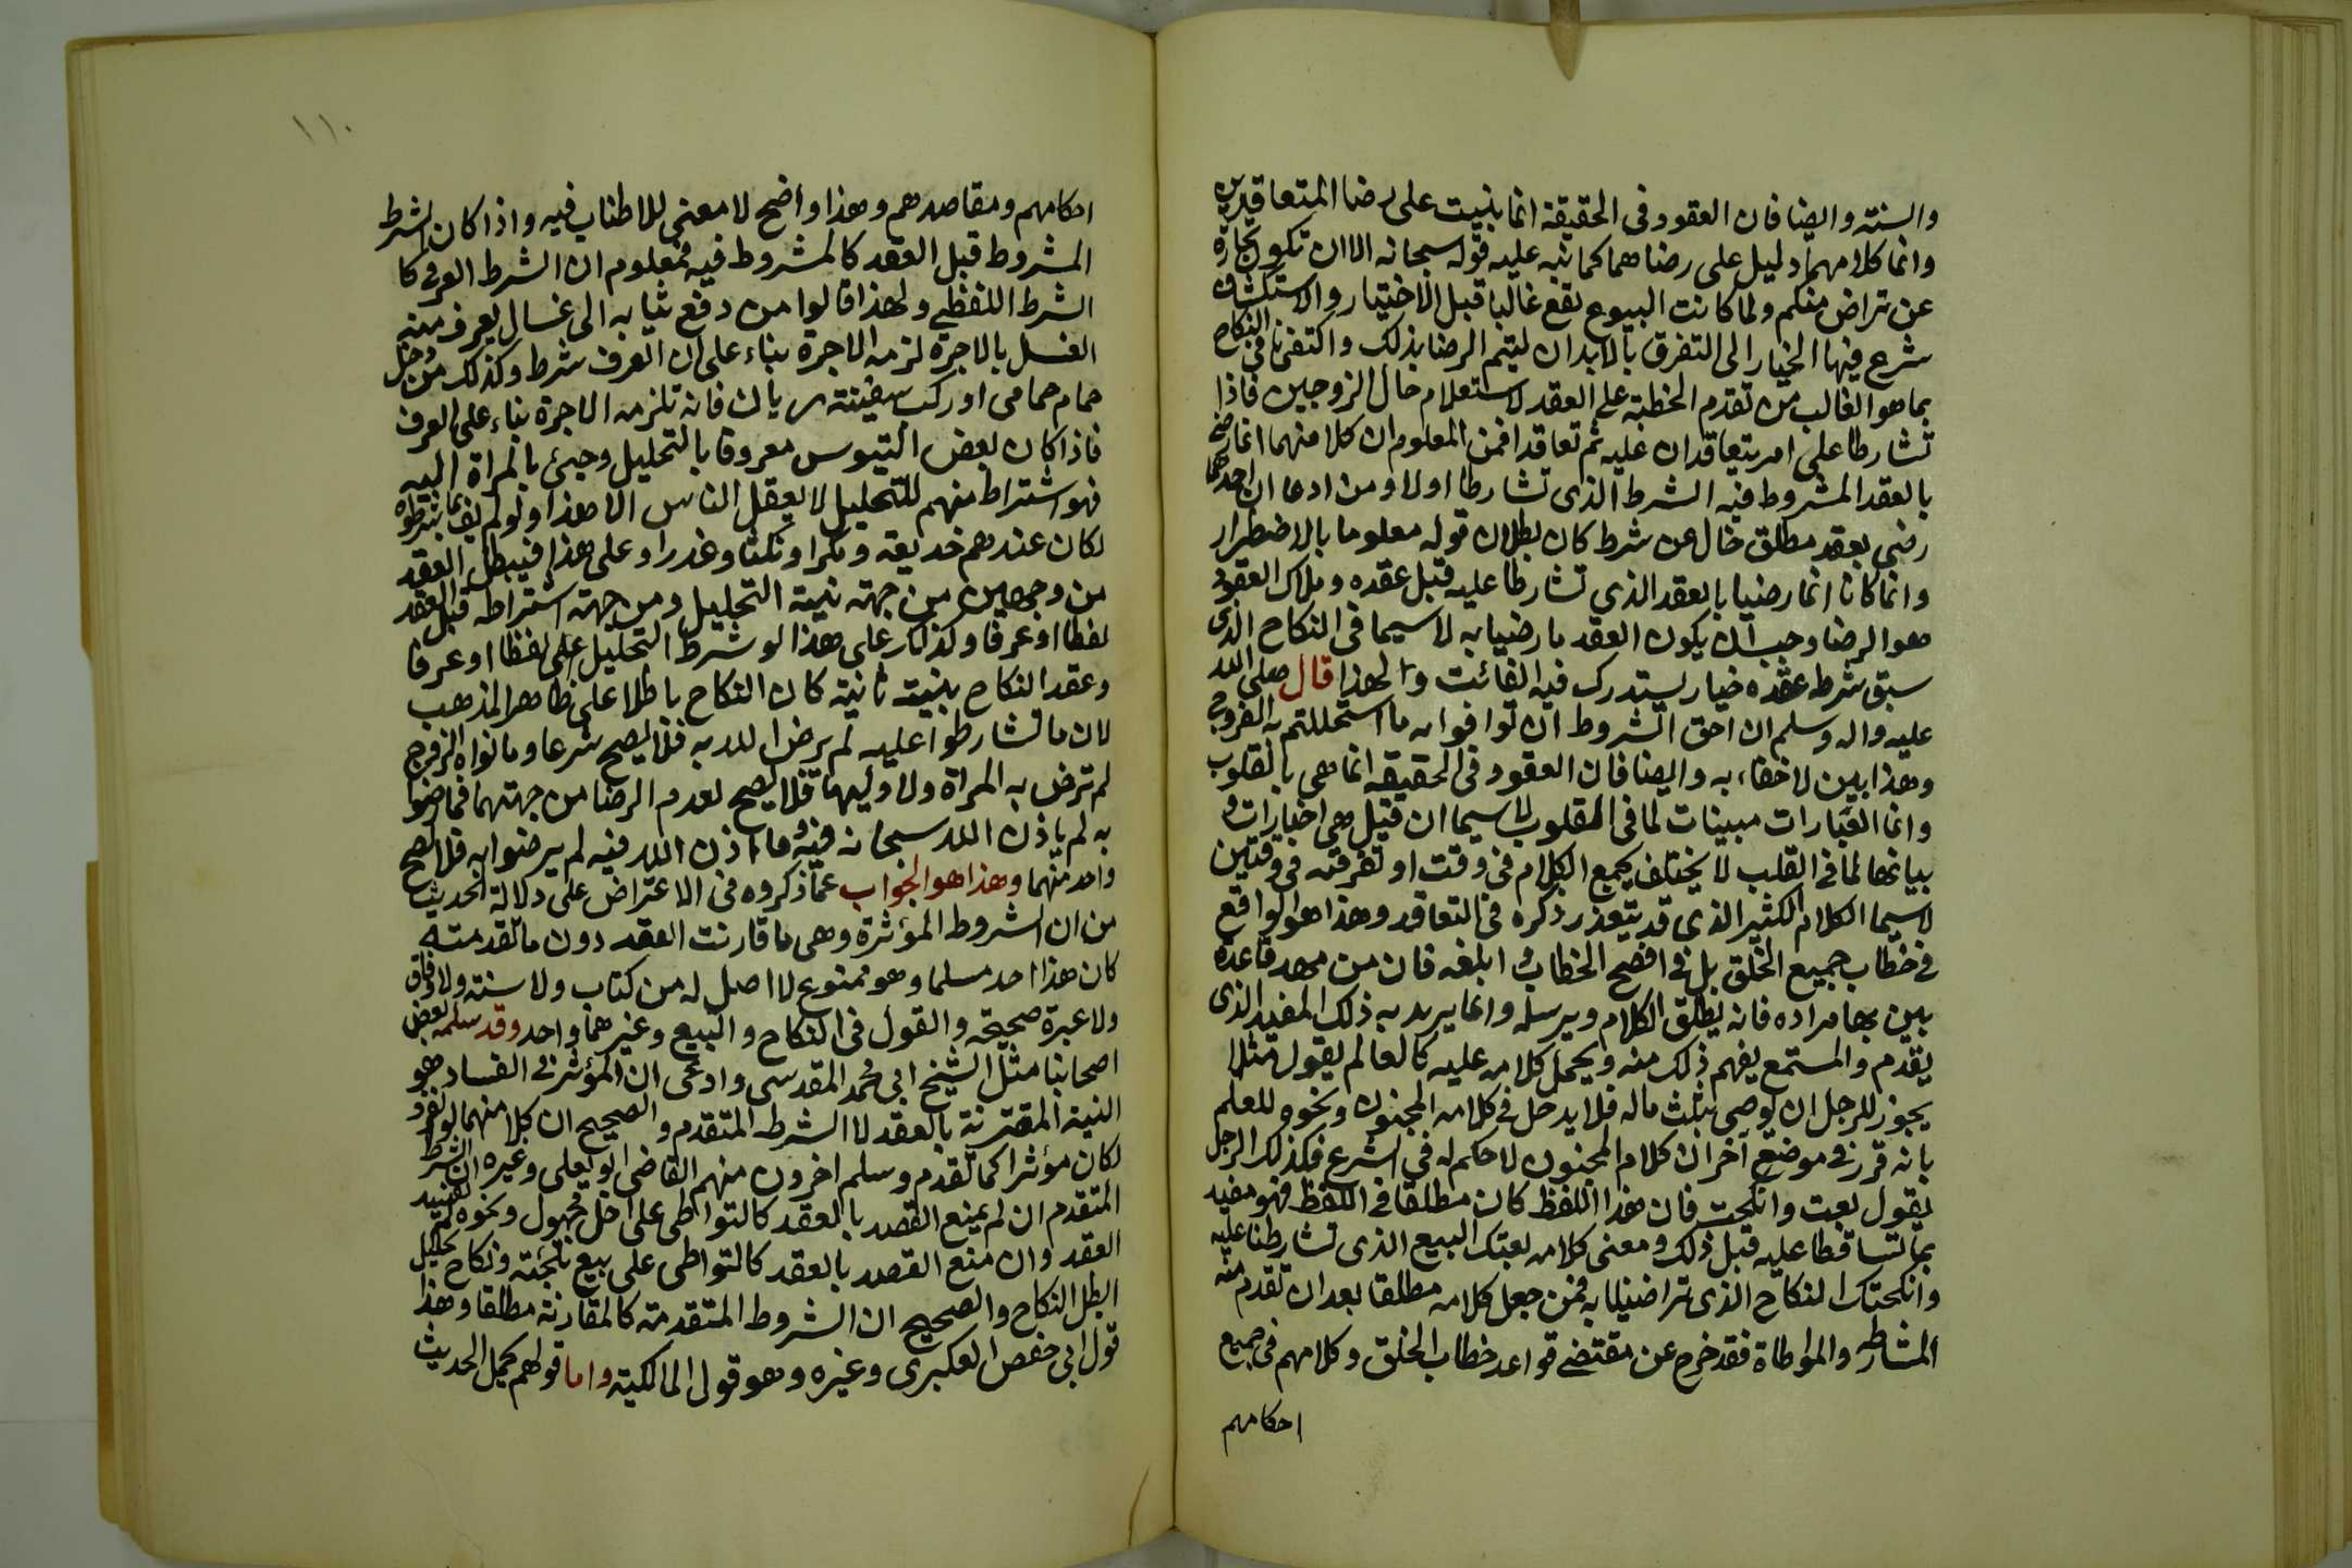 والسنته وايضا فان العقود في الحقيقة انما بنيت على رضا المتعاقدين
وانما كلامهما دليل على رضاهما كما نبه عليه قوله سبحانه الا ان تكون تجارة
عن تراض منكم ولما كانت البيوع تقع غالبا قبل الاختيار والاستكشاف
شرع فيها الخيار الى التفرق بالابدان ليتم الرضا بذلك واكتفى في النكاح
بما هو الغالب من تقدم الخطبة على العقد لاستعلام حال الزوجين فاذا
تشارطا على امر يتعاقدان عليه ثم تعاقدا فمن المعلوم ان كلا منهما انما رضي
بالعقد المشروط فيه الشرط الذى تشارطا اولا ومن ادعا ان احدهما
رضي بعقد مطلق خال عن شرط كان بطلان قوله معلوما بالاضطرار
وانما كانا انما رضيا بالعقد الذي تشارطا عليه قبل عقده وملاك العقود
هو الرضا وجب ان يكون العقد ما رضيا به لا سيما في النكاح الذى
سبق شرطه عقده خيار يستدرك فيه الفائت ولهذا قال صلى الله
عليه واله وسلم ان احق الشروط ان توافوا به ما استحللتم به الفروج
وهذا بين لا خفاء به وايضا فان العقود في الحقيقه انما هي بالقلوب
وانما العبارات مبينات لما في القلوب لا سيما ان قيل هي اخبارات و
بيانها لما في القلب لا يختلف بجمع الكلام في وقت او تفرقته في وقتين
لا سيما الكلام الكثير الذى قد يتعذر ذكره في التعاقد وهذا هو الواقع
في خطاب جميع الخلق بل في افصح الخطاب و ابلغه فان من مهد قاعدة
بين بها مراده فانه يطلق الكلام ويرسله وانما يريد به ذلك المقيد الذى
يقدم والمستمع يفهم ذلك منه ويحمل كلامه عليه كالعالم يقول مثلا
يجوز للرجل ان يوصي بثلث ماله فلا يدخل في كلامه المجنون ونحوه للعلم
بانه قرر في موضع آخر ان كلام المجنون لا حكم له في الشرع فكذلك الرجل
يقول بعت وانكحت فان هذا اللفظ كان مطلقا في اللفظ فهو مقيد
بما تساقطا عليه قبل ذلك ومعنى كلامه بعتك البيع الذى تشارطنا عليه
وانكحتك النكاح الذى تراضينا به فمن جعل كلامه مطلقا بعد ان تقدم منه
المشارطه والمواطاة فقد خرج عن مقتضي قواعد خطاب الخلق وكلامهم في جميع
احكامهم
١١٠
احكامهم ومقاصدهم وهذا واضح لا معنى للاطناب فيه واذا كان الشرط
المشروط قبل العقد كالمشروط فيه فمعلوم ان الشرط العرفي كا
الشرط اللفظي ولهذا قالوا من دفع ثيابه الى غسال يعرف منه
الغسل بالاجرة لزمه الاجرة بناء على ان العرف شرط وكذلك من دخل
حمام حمامى او ركب سفينة ربان فانه تلزمه الاجرة بناء على العرف
فاذا كان بعض التيوس معروفا بالتحليل وجئ بالمراة اليه
فهو اشتراط منهم للتحليل لا يعقل الناس الا هذا ولو لم يف بما شرطوه
لكان عندهم خديعة ومكرا ونكثا وغدرا وعلى هذا فيبطل العقد
من وجهين من جهة نية التحليل ومن جهة اشتراطه قبل العقد
لفظا او عرفا وكذلك على هذا لو شرط التحليل على لفظا او عرفا
وعقد النكاح بنية ثانية كان النكاح باطلا على ظاهر المذهب
لان ما تشارطوا عليه لم يرض الله به فلا يصح شرعا وما نواه الزوج
لم ترض به المراة ولا وليها فلا يصح لعدم الرضا من جهتهما فما رضوا
به لم ياذن الله سبحانه فيه وما اذن الله فيه لم يرضوا به فلا يصح
واحد منهما وهذا هو الجواب عما ذكروه في الاعتراض على دلالة الحديث
من ان الشروط المؤثرة وهي ما قارنت العقد دون ما تقدمته
كان هذا احد مسلما وهو ممنوع لا اصل له من كتاب ولا سنته ولا وفاق
ولا عبرة صحيحة والقول في النكاح والبيع وغيرهما واحد وقد سلمه بعض
اصحابنا مثل الشيخ ابي محمد المقدسى وادعى ان المؤثر في الفساد هو
النية المقترنة بالعقد لا الشرط المتقدم والصحيح ان كلا منهما لو انفرد
لكان مؤثرا كما تقدم وسلم اخرون منهم القاضى ابو يعلى وغيره ان الشرط
المتقدم ان لم يمنع القصد بالعقد كالتواطى على اجل مجهول ونحوه لم يفسد
العقد وان منع القصد بالعقد كالتواطى على بيع تلجئة ونكاح تحليل
ابطل النكاح والصحيح ان الشروط المتقدمة كالمقارنة مطلقا وهذا
قول ابى حفص العكبرى وغيره وهو قول المالكية واما قولهم بحمل الحديث